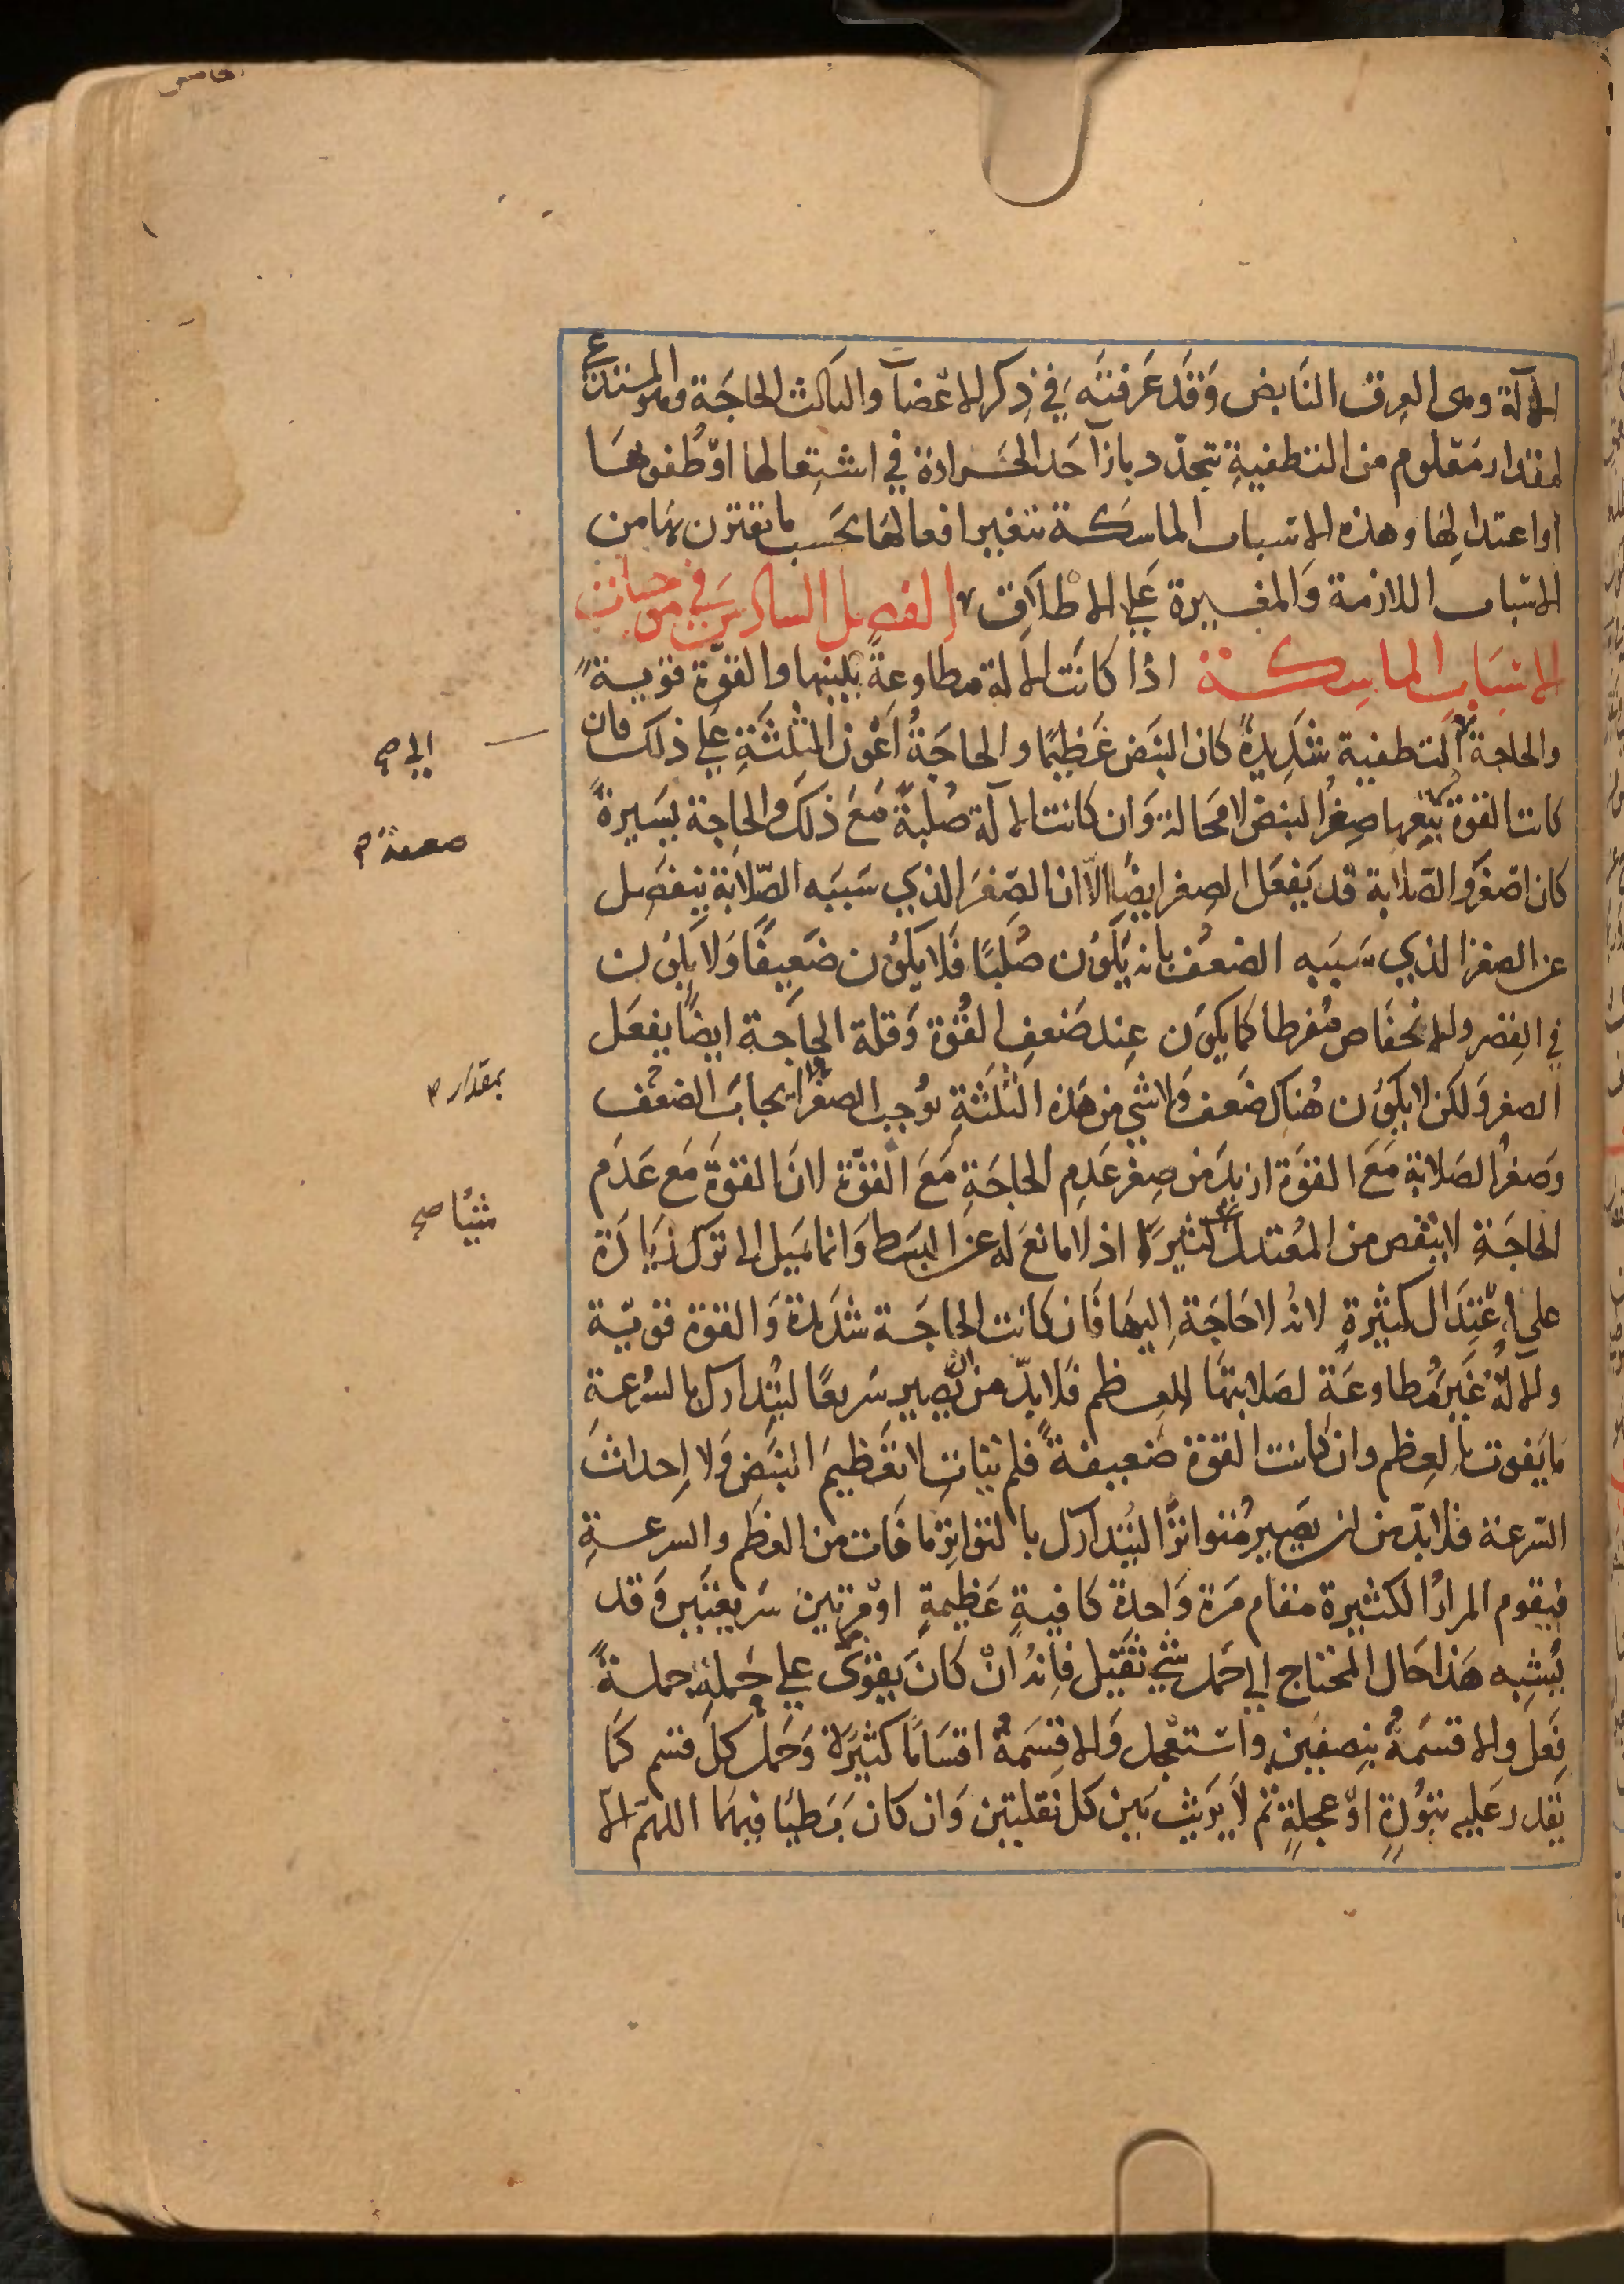 الآلة وهى العِرق النَابض وَقَد عَرفتَه فِي ذِكر الاعْضآ والثالث الحاجَة وهو المستدعي
لمقدار مَعْلوم من التطفيةِ تتجدّد بازآ حَد الحَرارة في اشتِعالها اوْ طُفوهَا
او اعتدالِهَا وهذه الاسباب الماسِكَة تتغير افعالهَا بحَسب ما تقترن بهَا من
الاسْباب اللازمة وَالمغيرة عَلى الاطلاق الفصل السادس فى موجبات
الاسْبَاب الماسِكة اذا كانَت الآلة مطاوعةً بلينها والقوّة قويةً
والحاجة التطفية شَدِيدةً كان النبَض عَظيمًا والحاجَةُ اعْون الثلثَةِ عَلي ذلك فان
كانت القوة يتبعها صِغرُ النبَض لا محالة وَان كانت الآلة صُلبةً مَعَ ذلك والحاجة يسَيرةً
كان اصْغَر والصَلابة قد يَفعَل الصِغر ايضًا الّا ان الصِغَر الذي سَببَه الصّلابة ينفصِل
عن الصغر الذي سَببه الضعُف بانه يَكوُن صُلبًا فَلا يَكوُن ضَعِيفًا وَلا يكوُن
في القِصَر والانخفَاض مُفرطا كما يكوَن عِند ضَعفِ القُوّة وَقلة الحاجَة ايضًا يفعَل
الصغر وَلكن لا يكوَن هُناك ضَعف وَلا شي مِن هَذه الثلثَةِ يُوجب الصغر ايجابَ الضعْف
وَصغرُ الصَلابة مَعَ القوّة ازيدَ من صِغَر عَدم الحاجَةِ مَعَ القوّة لانَ القوةَ مَع عَدَم
الحاجَةِ لا ينقص من المعُتدل كثيرًا اذ لا مانعَ له عَن البسَط وَانما مَيل الى ترَك زيَادَة
على اعْتِدَال كثيرةٍ لانهُ لا حَاجَة اِليهَا فَان كانت الحاجَة شدَيدة وَالقوة قويّة
والآلةُ غَيرُ مُطاوعَة لصَلابتهَا للعِظم فَلا بدّ من ان يَصير سَريعًا لَيُتدارك بالسُرعة
مَا يَفوت بالعِظم وان كانت القوة ضَعيفةً فلم يَتاتِ لا تَعْظيم النبَض وَلا اِحداث
السّرعة فلا بدّ من ان يَصير مُتواترًا ليُتدارك بالتواتر مَا فَات من العِظَم والسرعةِ
فيقوم المرارُ الكثيرة مقام مَرة وَاحدة كافيةٍ عَظيمةٍ اوْ مرتين سَريعَتين وَقد
يُشبِه هَذا حَال المحتاج الي حَمل شي ثَقيل فانهُ انْ كانَ يَقوَى علي حَملهِ جملةً
فَعل والا قسَمَهُ بنِصفين واسْتعْجل وَالا قسَمَهُ اقسَامًا كثيرَة وَحَمل كل قسم كمَا
يَقدر عَليه بتُؤدةٍ اوْ عجلةٍ ثم لا يَريث بَين كل نقلتين وَان كان بَطيًا فيهمَا اللهمّ الا
الى صح
بمقدار
شيئًا صح